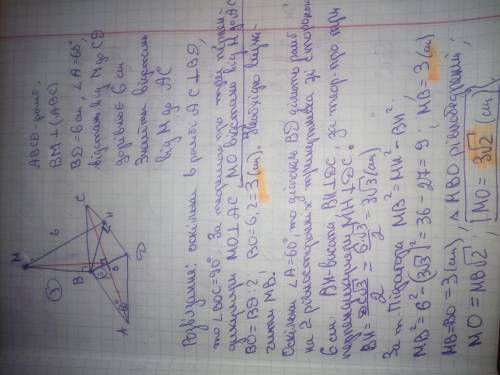 ABCD - ромб,
BM ⊥ (ABC)
BD = 6 см, ∠A = 60°,
відстань від M до CD
дорівнює 6 см
Знайти відстань
від M до AC
③
M
6
C
H
B
O
6
D
A
Розв'язання: оскільки в ромбі AC ⊥ BD,
то ∠BOC = 90°. За теоремою про три перпен-
дикуляри MO ⊥ AC, MO відстань від M до AC
BO = BD : 2, BO = 6 : 2 = 3 (см). Необхідно
MB.
Оскільки ∠A = 60°, то діагональ BD ділить ромб
на 2 рівносторонніх трикутника зі стороною
6 см. BH - висота BH ⊥ DC, за теор. про три
перпендикуляри MH ⊥ DC.
BH = DC√3 / 2 = 6√3 / 2 = 3√3 (см)
За т. Піфагора MB² = MH² - BH².
MB² = 6² - (3√3)² = 36 - 27 = 9; MB = 3 (см)
MB = BO = 3 (см), △ MBO рівнобедрений,
MO = MB√2; MO = 3√2 (см)